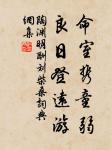 命室攜童弱
良日登遠游
陶淵明酬劉柴桑詞典
網集